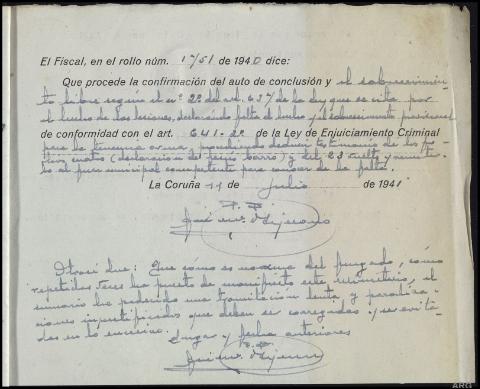 El Fiscal, en el rollo núm. 1751 de 1940 dice:
Que procede la confirmación del auto de conclusión y el sobreseimien-
to libre según el nº 2º del art. 637 de la ley que se cita por
el hecho de las lesiones, declarando falta el hecho y el sobreseimiento provisional
de conformidad con el art. 641-2º de la Ley de Enjuiciamiento Criminal
para la tenencia arma, deducir testimonio de los
(declaración de Barro) y del 23 vuelto y
al juez municipal competente para conocer de la falta.
La Coruña 11 de Julio de 1941
P. D.
Otrosí dice: Que como es norma del juzgado, como
repetidas veces ha puesto de manifiesto este ministerio, el
sumario ha padecido una tramitación lenta y paraliza-
ciones injustificadas que deben ser corregidas y evita-
das en lo sucesivo.
Lugar y fecha anteriores
P. D.
ARG